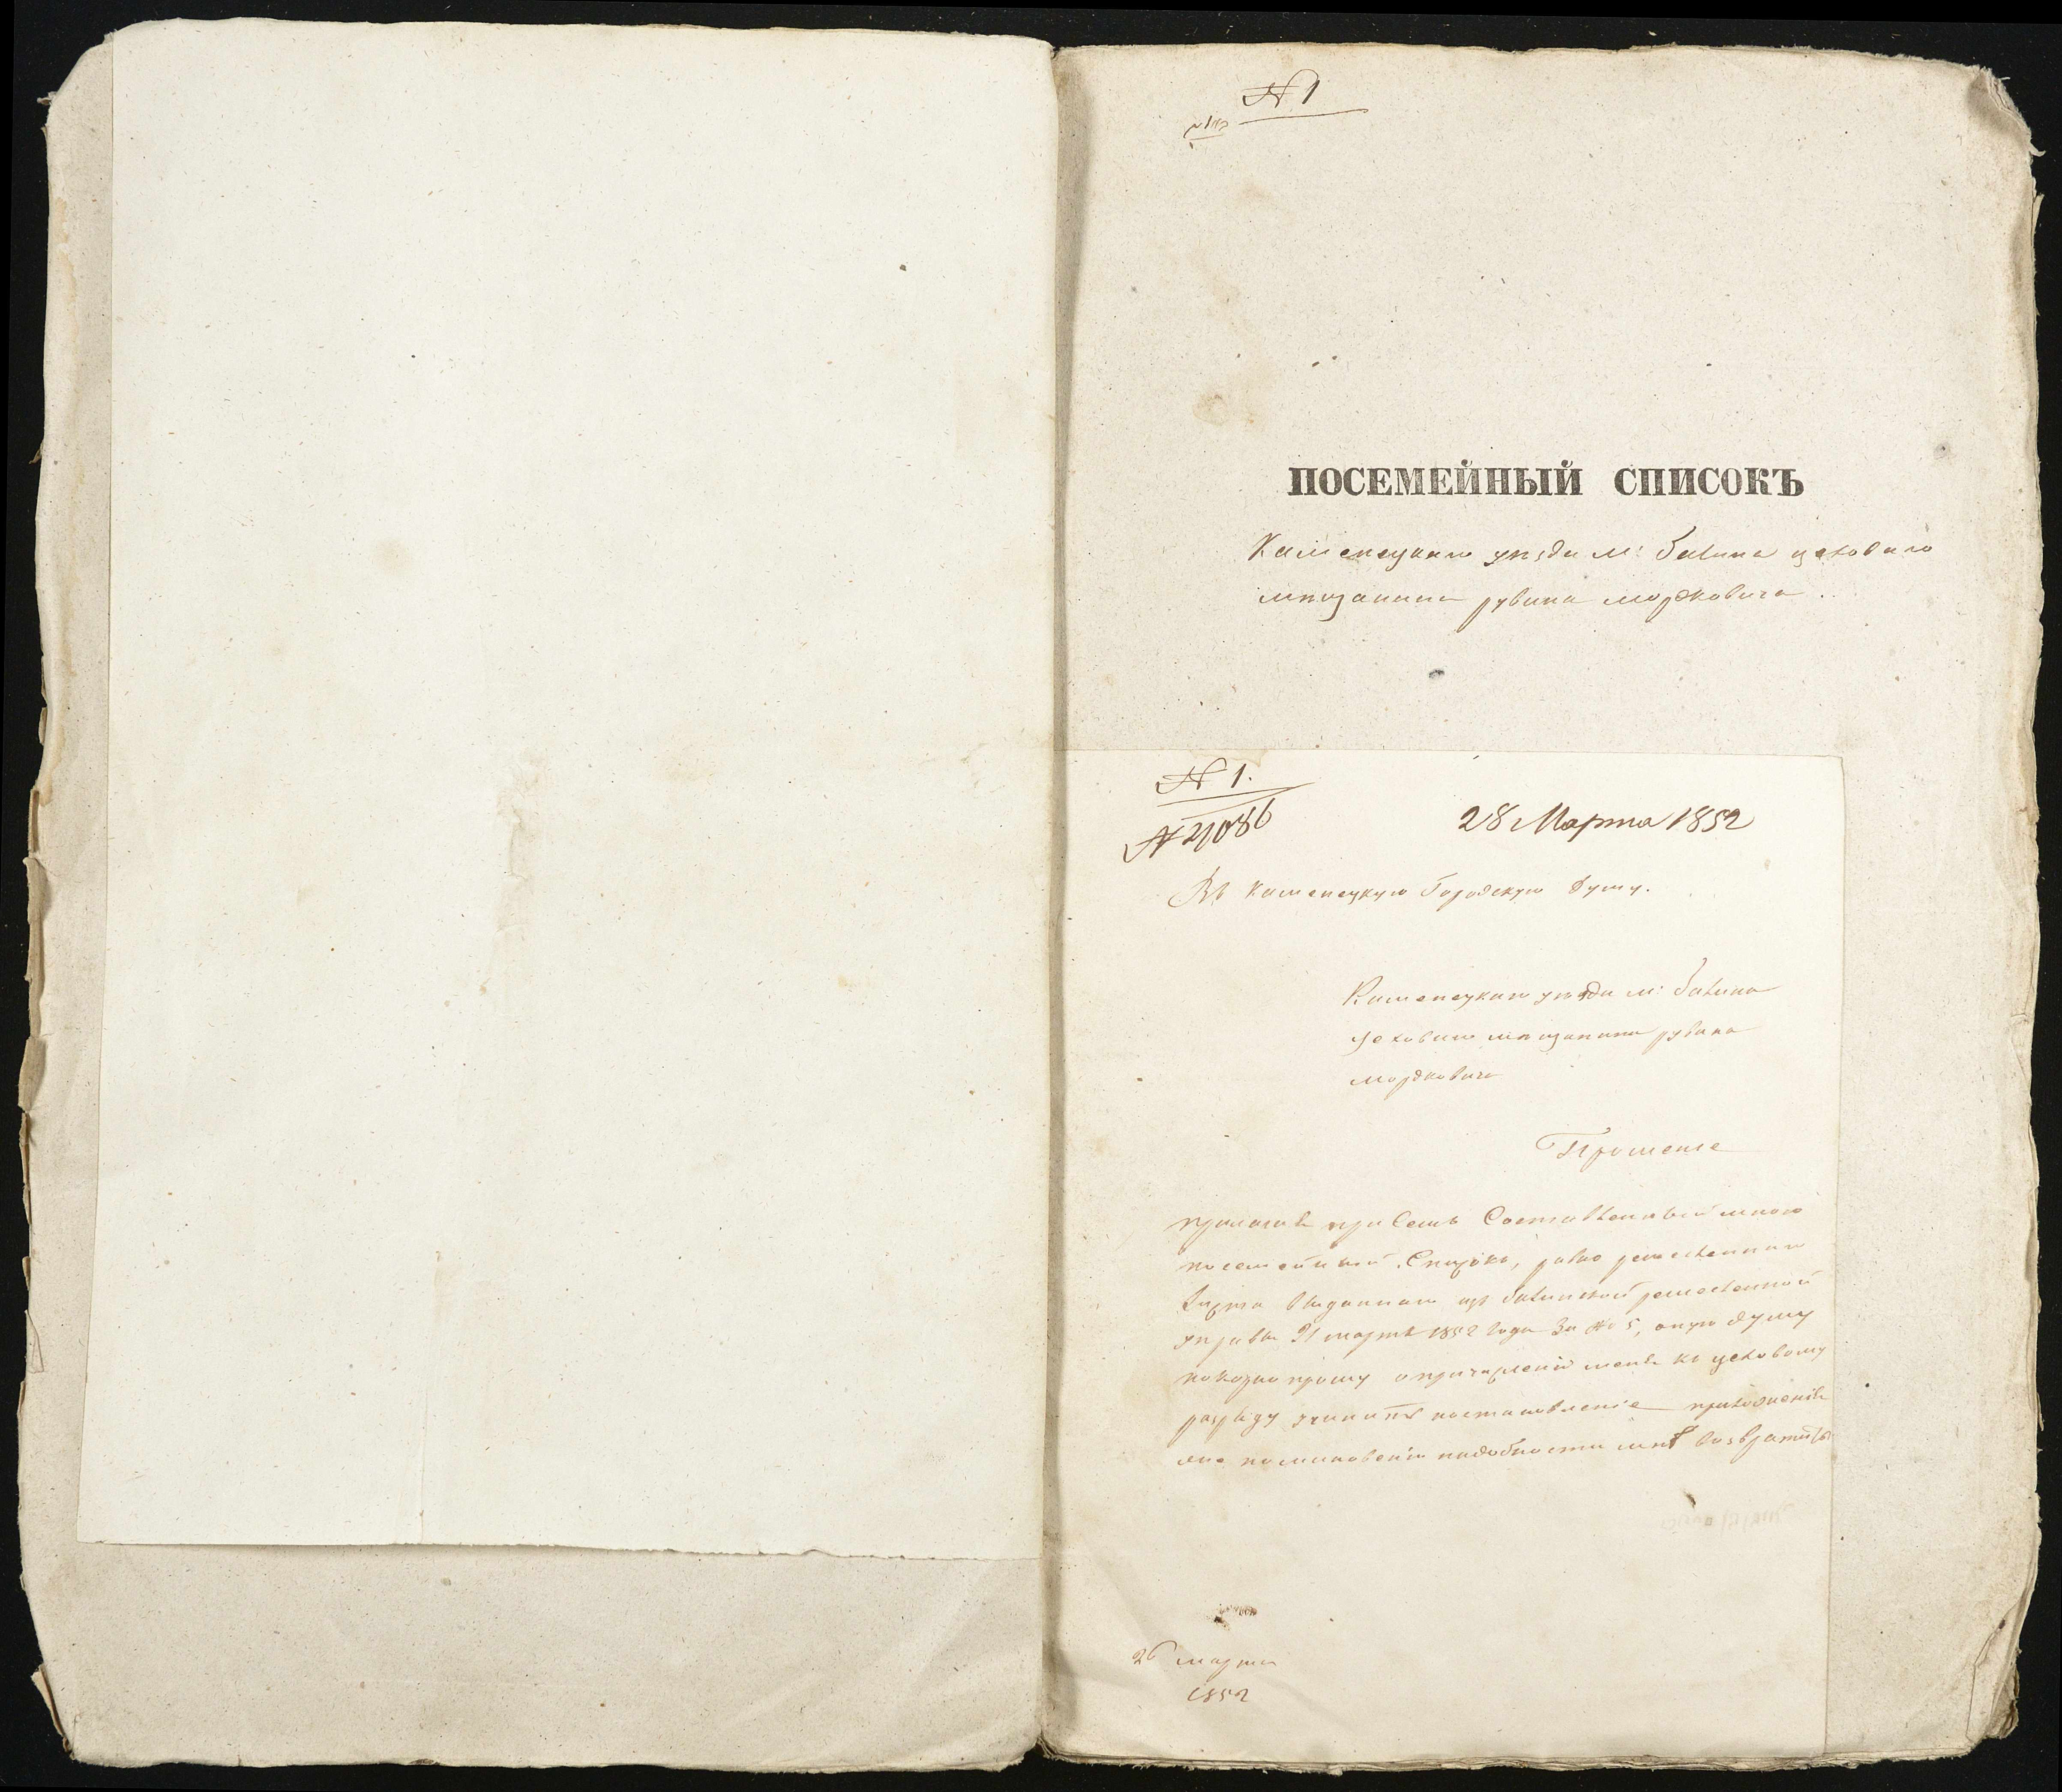 № 1
ПОСЕМЕЙНЫЙ СПИСОКЪ
Каменецкаго уѣзда м: Балина цеховаго
мѣщанина рувина мордковича.
№ 1.
28 Марта 1852
Въ Каменецкую Городскую Думу.
Каменецкаго уѣзда м: Балина
цеховаго мѣщанина рувина
мордковича
Прошение
прилагая при Семъ Составленный мною
посемейный Списокъ, равно ремесленнии
выданнаго изъ балинской ремесленной
управы 21 марта 1852 года За № 5, оную думу
покорно прошу о причислении меня къ цеховому
разряду учинить постановление приложения
по минованию надобности мнѣ возвратить
26 марта
1852